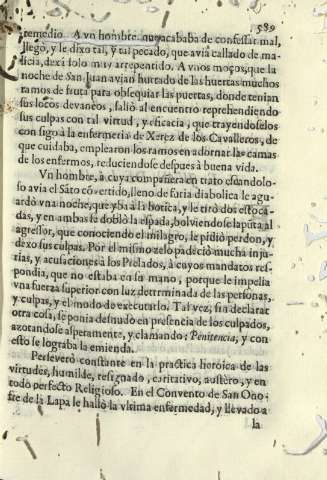 589
remedio. A vn hombre que acababa de confessar mal,
llegò, y le dixo tal, y tal pecado, que avia callado de ma-
licia, dexàdolo muy arrepentido. A vnos moços, que la
noche de San Juan avian hurtado de las huertas muchos
ramos de fruta para obsequiar las puertas, donde tenian
sus locos devaneos, saliò al encuentro reprehendiendo
sus culpas con tal virtud, y eficacia, que trayendoselos
consigo à la enfermeria de Xerez de los Cavalleros, de
que cuidaba, emplearon los ramos en adornar las camas
de los enfermos, reduciendose despues à buena vida.
Vn hombre, à cuya compañera en trato escandolo-
so avia el Sāto cōvertido, lleno de furia diabolica le agu-
ardò vna noche, que yba à la botica, y le tirò dos estoca-
das, y en ambas se doblò la espada, bolviendose la pūta al
agressor, que conociendo el milagro, le pidiò perdon, y
dexo sus culpas. Por el mismo zelo padeciò mucha inju-
rias, y acusaciones à los Prelados, à cuyos mandatos res-
pondia, que no estaba en su mano, porque le impelia
vna fuerza superior con luz determinada de las personas,
y culpas, y el modo de executarlo. Tal vez, sin declarar
otra cosa, se ponia desnudo en presencia de los culpados,
azotandose asperamente, y clamando; Penitencia, y con
esto se lograba la emienda.
Perseverò constante en la practica heroica de las
virtudes, humilde, resignado, caritativo, austero, y en
todo perfecto Religioso. En el Convento de San Ono-
fre de la Lapa le hallò la vltima enfermedad, y llevado a
la